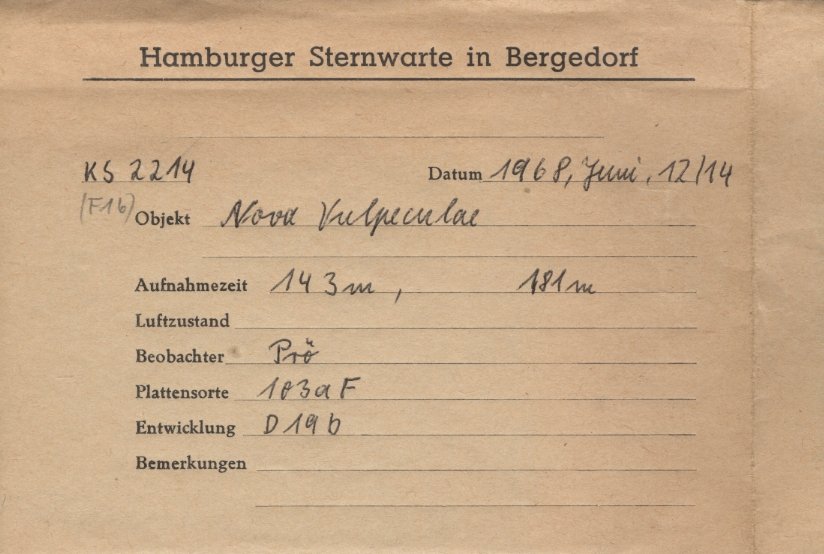 Hamburger Sternwarte in Bergedorf
KS 2214 Datum 1968, Juni, 12/14
(F16) Objekt Nova Vulpeculae
Aufnahmezeit 143m, 181m
Luftzustand
Beobachter Prö
Plattensorte 103aF
Entwicklung D19b
Bemerkungen